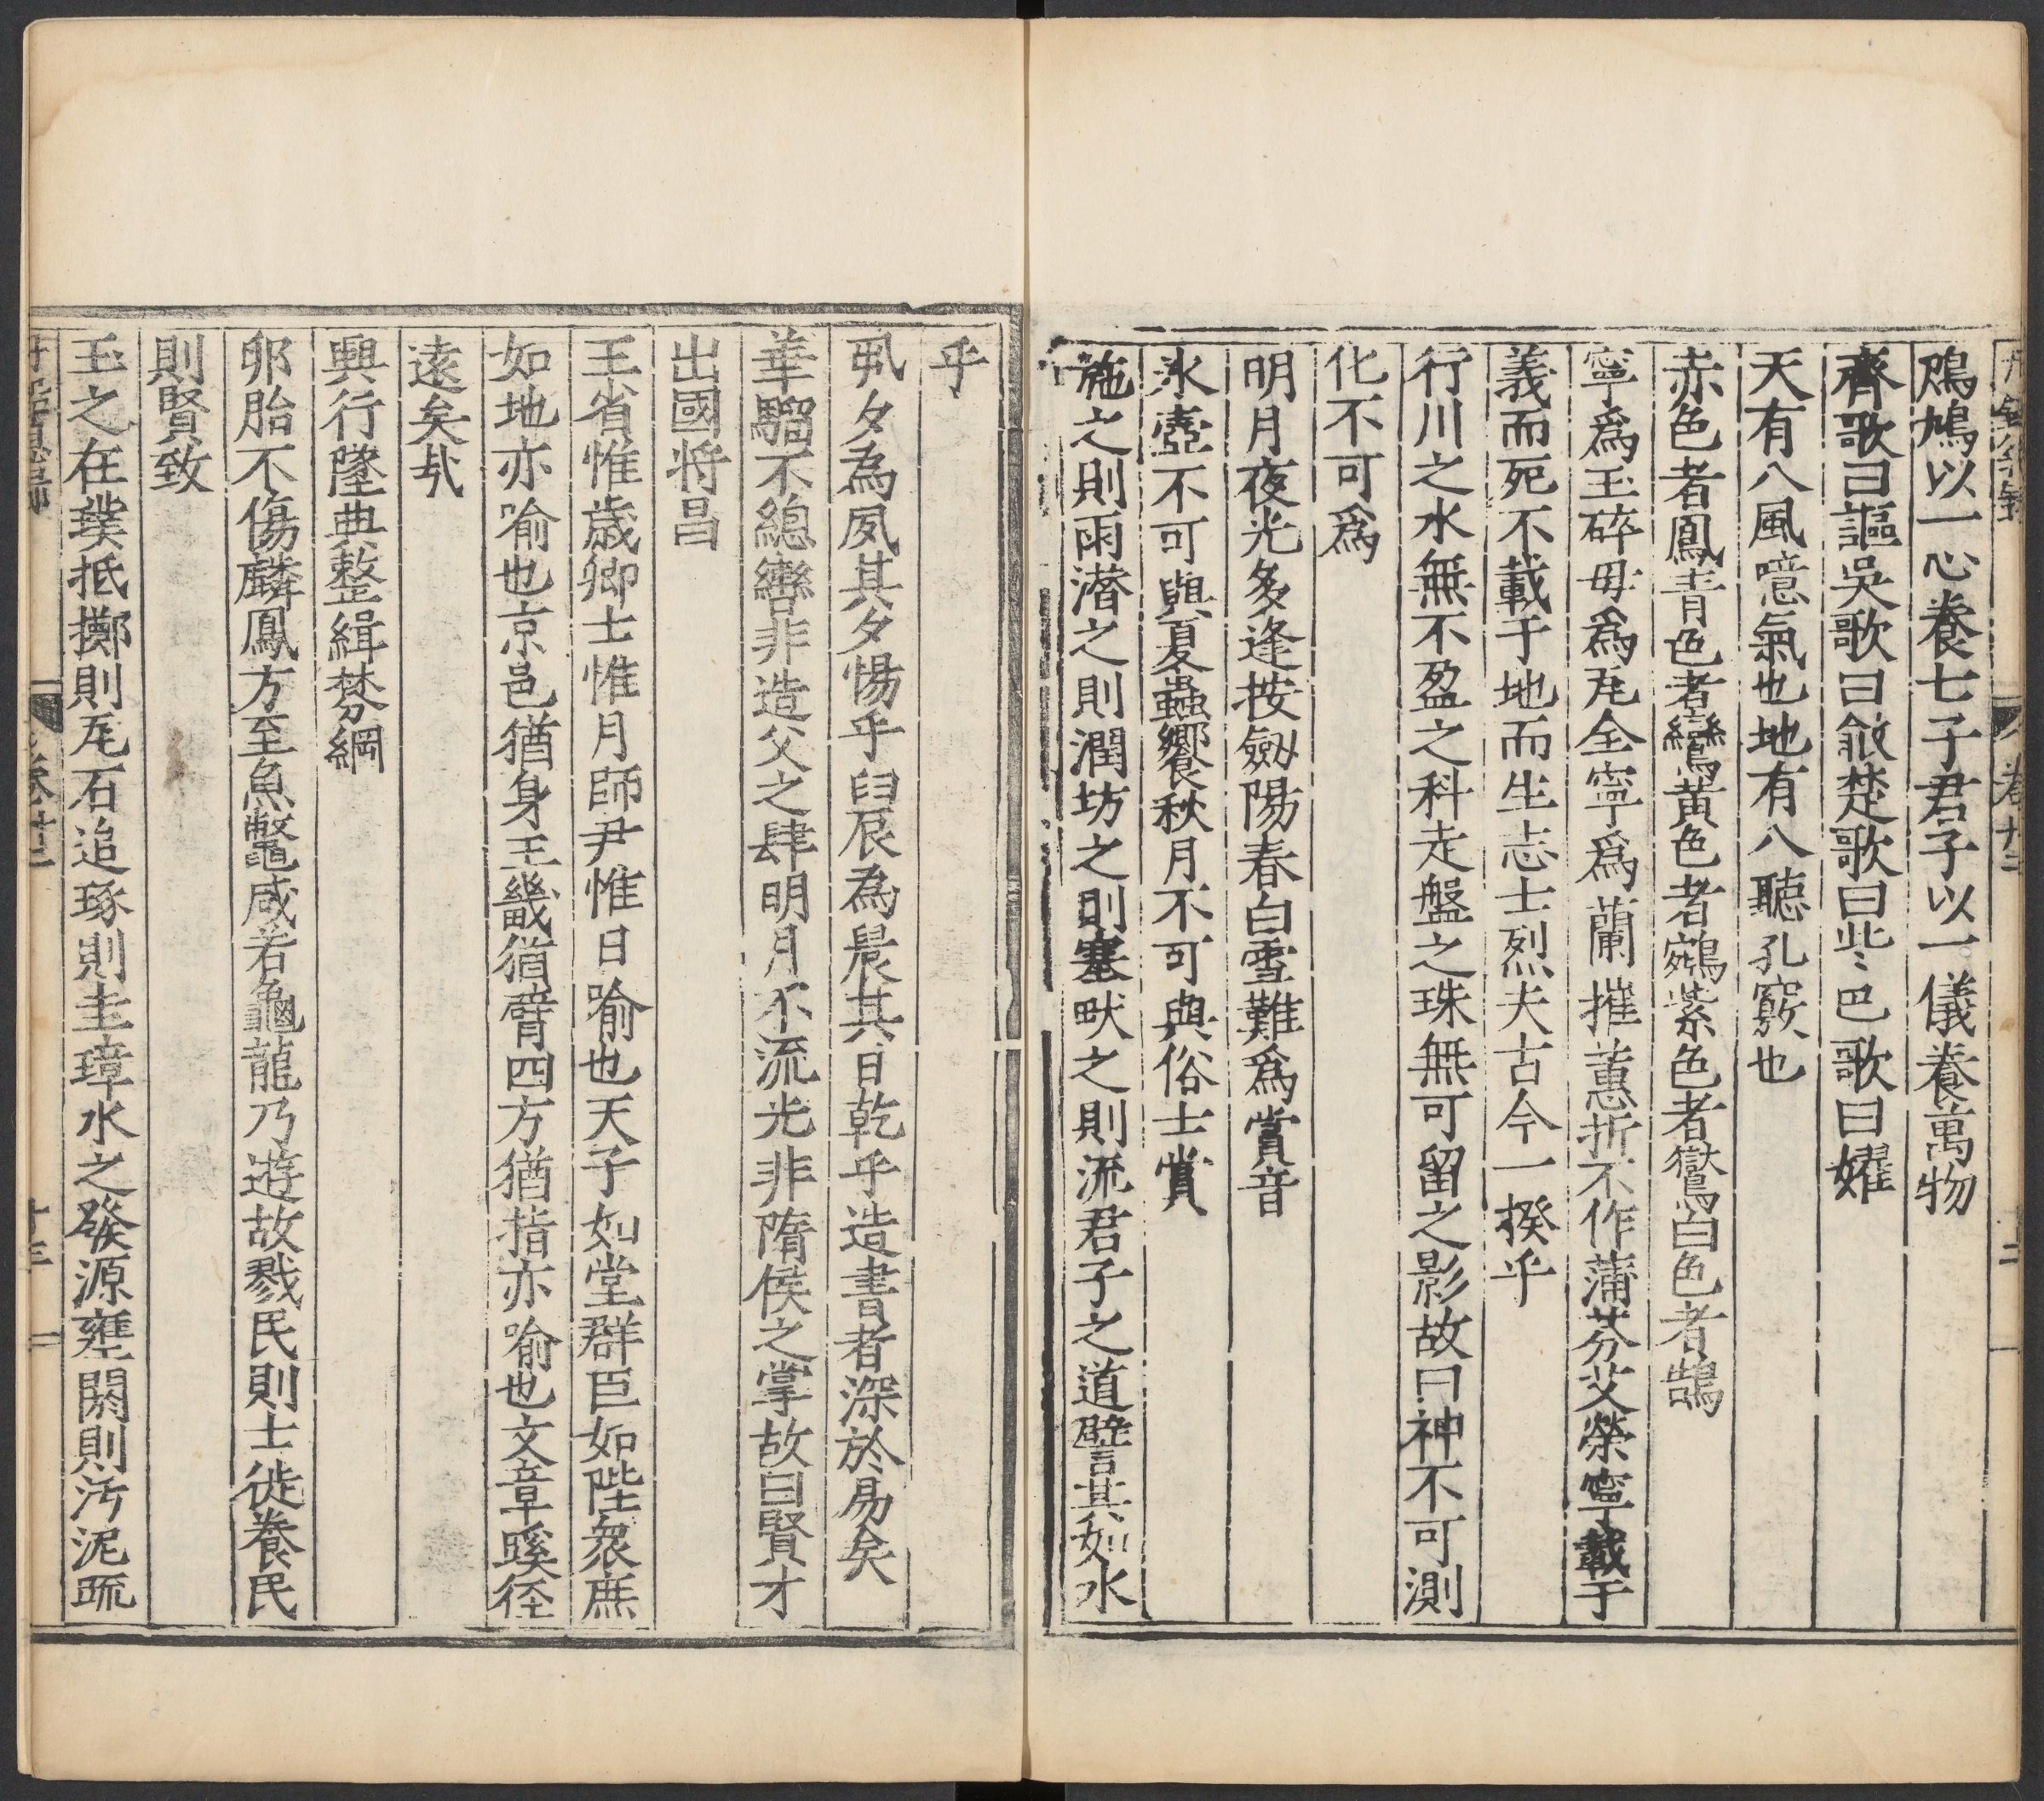 鳲鳩以一心養七子君子以一儀養萬物
齊歌曰謳吳歌曰歈楚歌曰些巴歌曰嬥
天有八風噫氣也地有八聽孔竅也
赤色者鳳青色者鸞黃色者鵷紫色者鸑白色者鵠
寧爲玉碎毋爲瓦全寧爲蘭摧蕙折不作蒲芬艾榮寧載于
義而死不載于地而生志士烈夫古今一揆乎
行川之水無不盈之科走盤之珠無可留之影故曰神不可測
化不可爲
明月夜光多逢按劔陽春白雪難爲賞音
氷壺不可與夏蟲饗秋月不可與俗士賞
施之則雨潛之則潤坊之則塞畎之則流君子之道譬其如水
乎
夙夕爲夙其夕惕乎𦥑辰爲晨其日乾乎造書者深於易矣
華騮不緫轡非造父之肆明月不流光非隋侯之掌故曰賢才
出國将昌
王省惟歲卿士惟月師尹惟日喻也天子如堂群臣如陛衆庶
如地亦喻也京邑猶身王畿猶臂四方猶指亦喻也文章蹊徑
逺矣㢤
興行墜典整緝棼綱
卵胎不傷麟鳳方至魚鼈咸若龜龍乃遊故戮民則士徙養民
則賢致
玉之在璞抵擲則瓦石追琢則圭璋水之發源壅閼則汚泥疏
卷廿二
十三